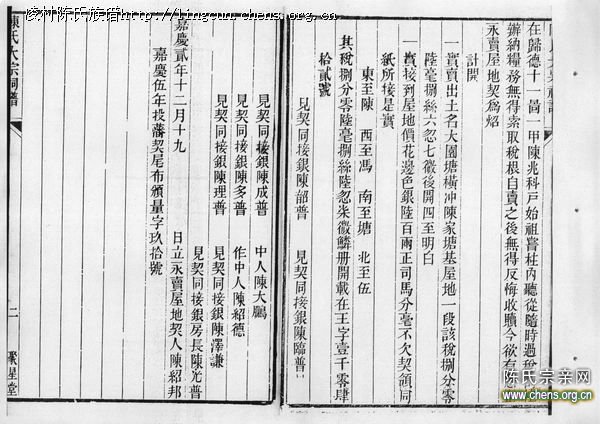 在歸德十一啚一甲陳兆科戶始祖嘗柱内聽從隨時過稅
辦納糧務無得索取稅根自賣之後無得反悔收贖今欲有
永賣屋地契為炤
計開
一實賣出土名大園塘橫冲陳家塘基屋地一段該稅捌分零
陸毫捌絲六忽七微後開四至明白
一實接到屋地價花邊色銀陸百兩正司馬分毫不欠契領同
紙所接是實
東至陳 西至馮 南至塘 北至伍
其稅捌分零陸毫捌絲陸忽柒微鱗册開載在王字壹千零肆
拾貳號
見契同接銀陳韶普 見契同接銀陳臨普
見契同接銀陳成普 中人陳大鵬
見契同接銀陳多普 作中人陳紹德
見契同接銀陳理普 見契同接銀陳澤謙
見契同接銀房長陳光普
嘉慶貳年十二月十九 日立永賣屋地契人陳紹邦
嘉慶伍年投藩契尾布頒量字玖拾號
陳氏大宗祠譜
二
聚星堂
凌村陳氏族谱 http://lingcun.chens.org.cn
陈氏宗亲网
www.chens.org.cn